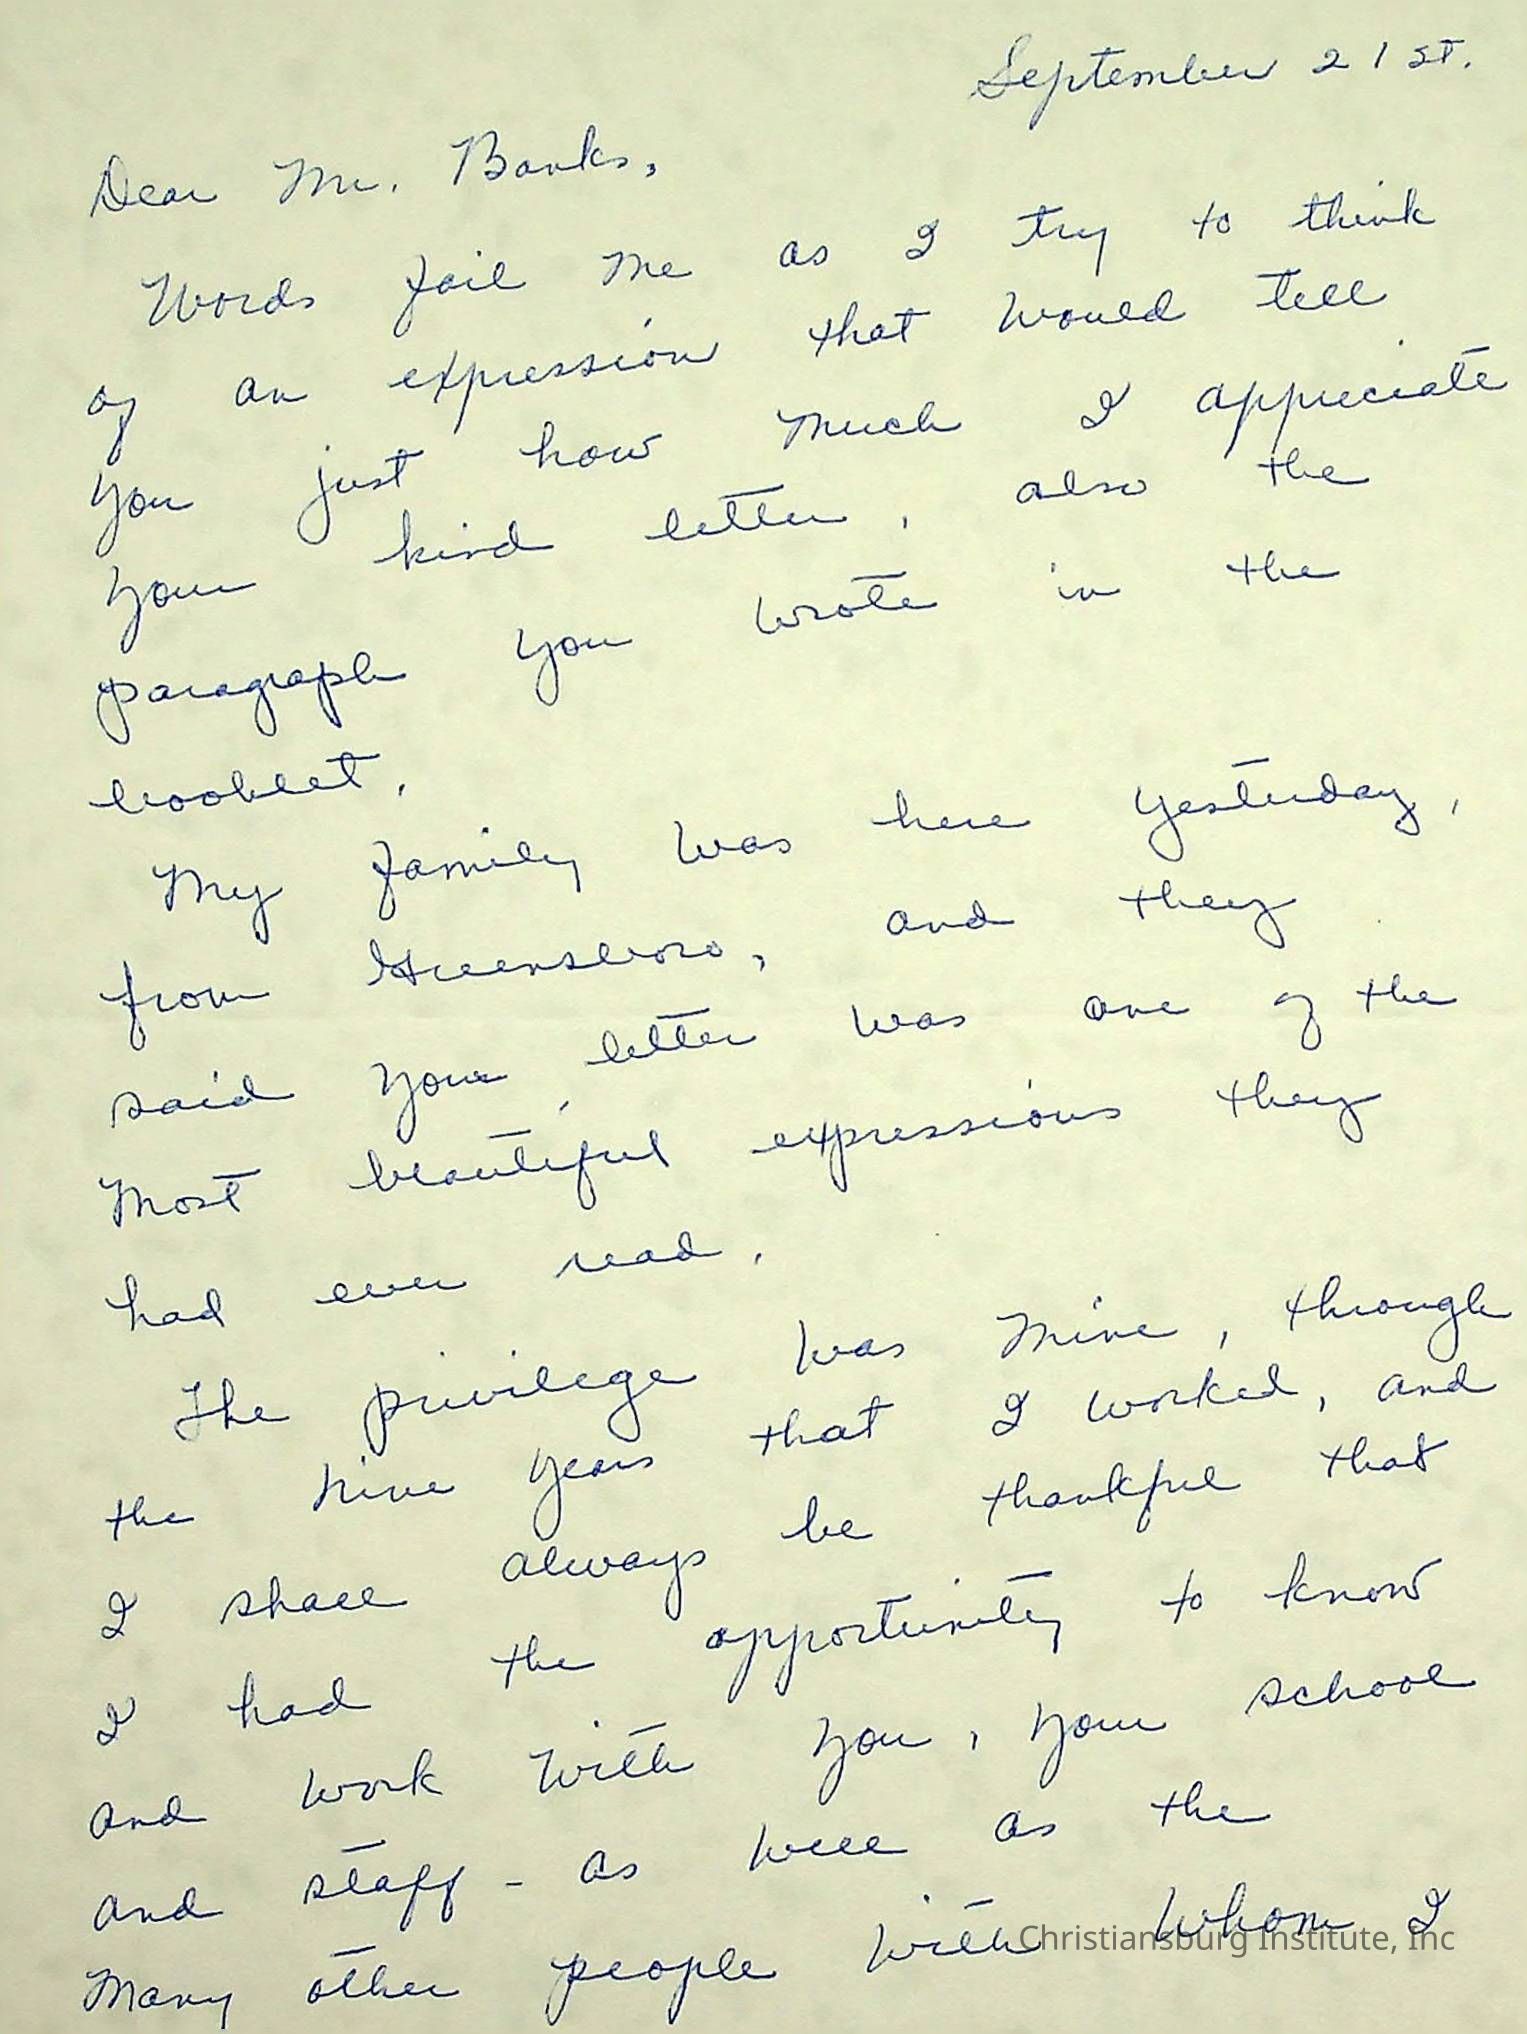 September 21st.
Dear Mr. Banks,
Words fail me as I try to think
of an expression that would tell
you just how much I appreciate
your kind letter, also the
paragraph you wrote in the
booklet.
My family was here yesterday,
from Greensboro, and they
said your letter was one of the
most beautiful expressions they
had ever read.
The privilege was mine, through
the nine years that I worked, and
I shall always be thankful that
I had the opportunity to know
and work with you, your school
and staff - as well as the
many other people with whom I
Christiansburg Institute, Inc